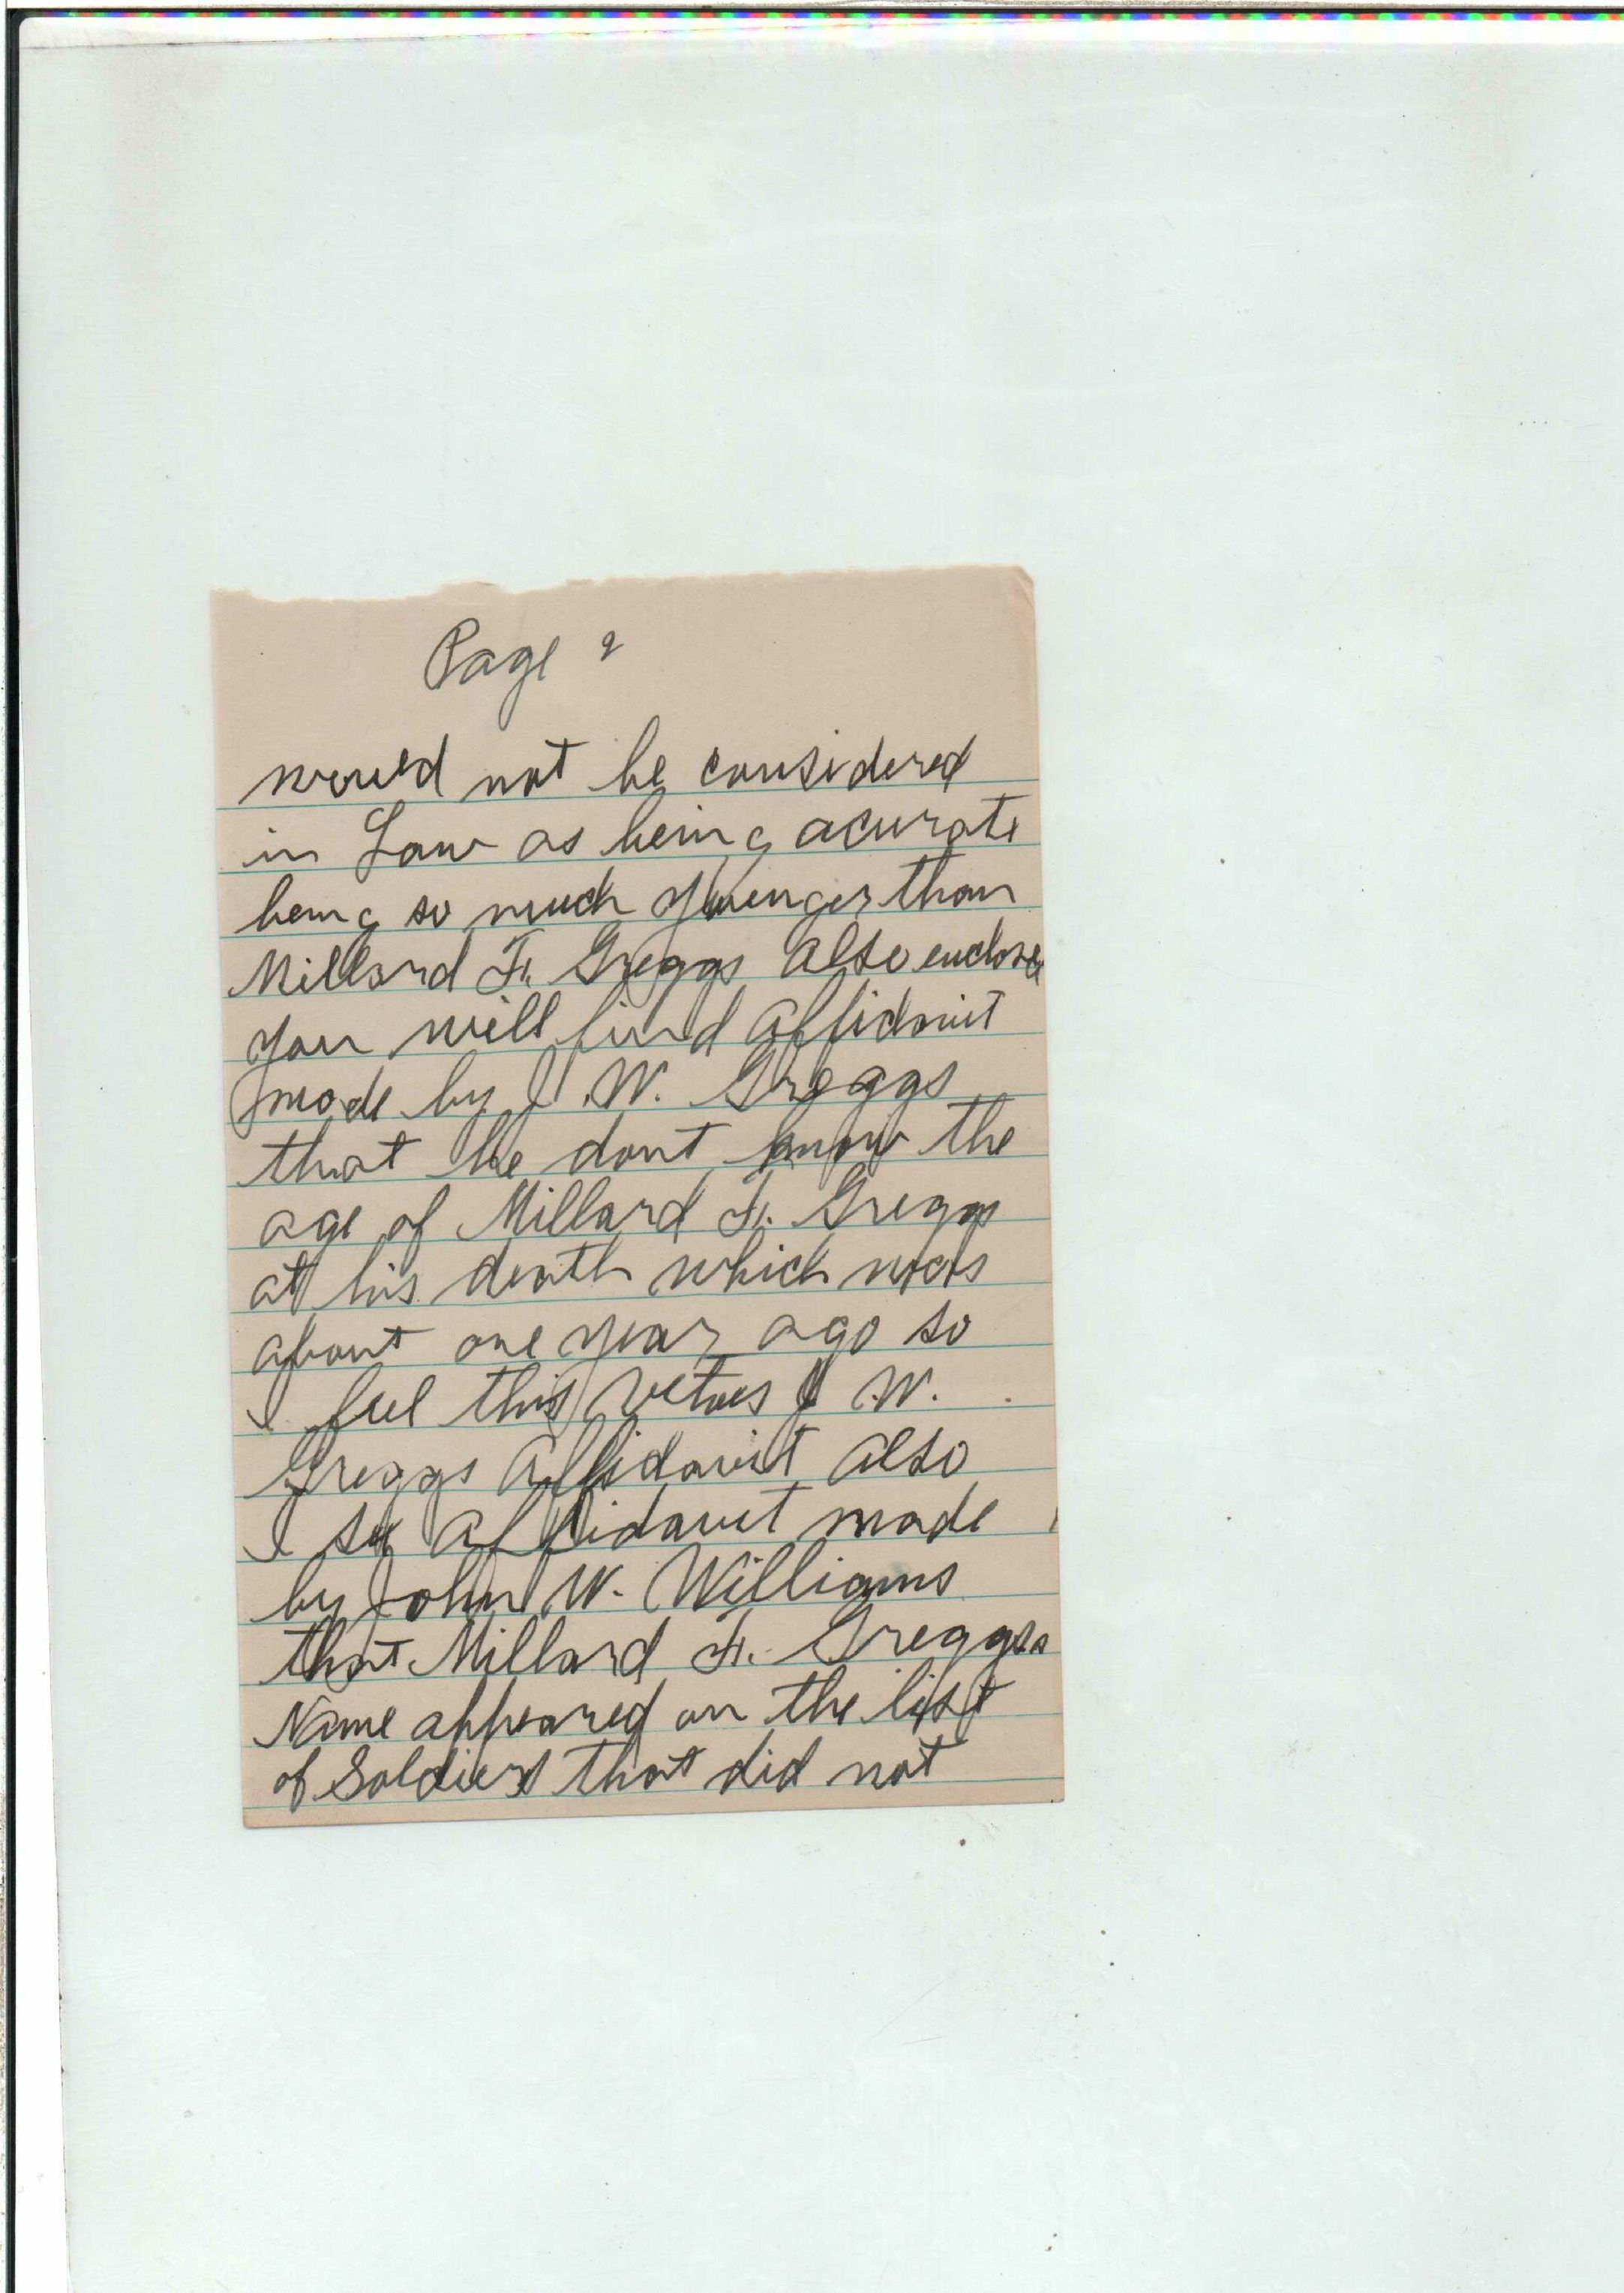 Page 2
would not be considered
in Law as being acurate
being so much younger than
Millard F. Greggs also enclosed
you will find affidavit
made by J. W. Greggs
that he dont know the
age of Millard F. Greggs
at his death which was
about one year ago so
I feel this vetoes J W.
Greggs Affidavit also
I see affidavit made
by John W. Williams
that Millard F. Greggs
Name appeared on the list
of Soldiers that did not